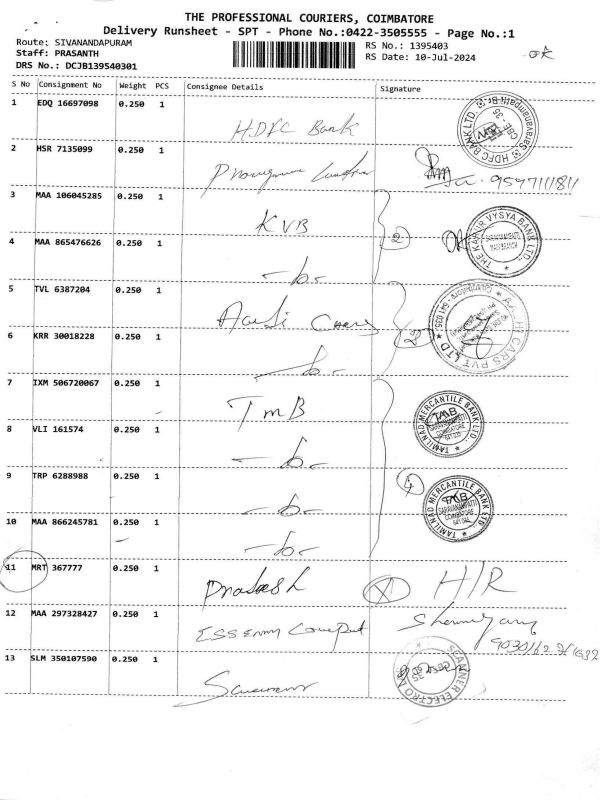 THE PROFESSIONAL COURIERS, COIMBATORE
Delivery Runsheet - SPT - Phone No.:0422-3505555 - Page No.:1
Route: SIVANANDAPURAM
RS No.: 1395403
Staff: PRASANTH
RS Date: 10-Jul-2024
DRS No.: DCJB139540301
S No Consignment No Weight PCS Consignee Details Signature
1 EDQ 16697098 0.250 1 HDFC Bank
HDFC BANK LTD. CBE - 35
2 HSR 7135099 0.250 1
3 MAA 106045285 0.250 1 KVB
2
THE KARUR VYSYA BANK LTD.
MAIN BRANCH
4 MAA 865476626 0.250 1 -b-
5 TVL 6387204 0.250 1
2
CARS PVT LTD
6 KRR 30018228 0.250 1 -b-
7 IXM 506720067 0.250 1 TMB
TAMILNAD MERCANTILE BANK LTD.
TMB
SARAVANAMPATTI
COIMBATORE
8 VLI 161574 0.250 1 -b-
9 TRP 6288988 0.250 1 -b-
4
TAMILNAD MERCANTILE BANK LTD.
TMB
SARAVANAMPATTI
COIMBATORE
10 MAA 866245781 0.250 1 -b-
11 MRT 367777 0.250 1 Prakash H/R
12 MAA 297328427 0.250 1
13 SLM 350107590 0.250 1
SCANNER ELECTRO